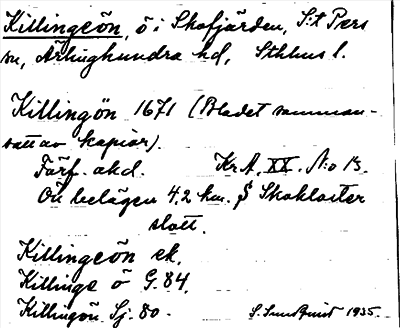 Killingeön, ö i Skofjärden, S:t Pers
sn, Ärlinghundra hd, Sthlms l.
Killingön 1671 (Bladet samman-
satt av kopior).
Förf. okd. Kr.A. XX. N:o 13.
Ön belägen 4,2 km. S Skokloster
slott.
Killingeön ek.
Killinge ö G. 84.
Killingön Sj. 80. S. Sundquist 1935.